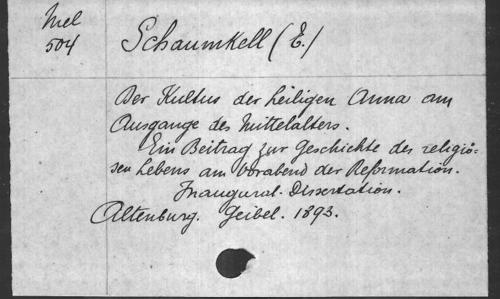 Mel
504
Schaumkell (E.)
Der Kultus der heiligen Anna am
Ausgange des Mittelalters.
Ein Beitrag zur Geschichte des religiö-
sen Lebens am Vorabend der Reformation.
Inaugural-Dissertation.
Altenburg. Geibel. 1893.